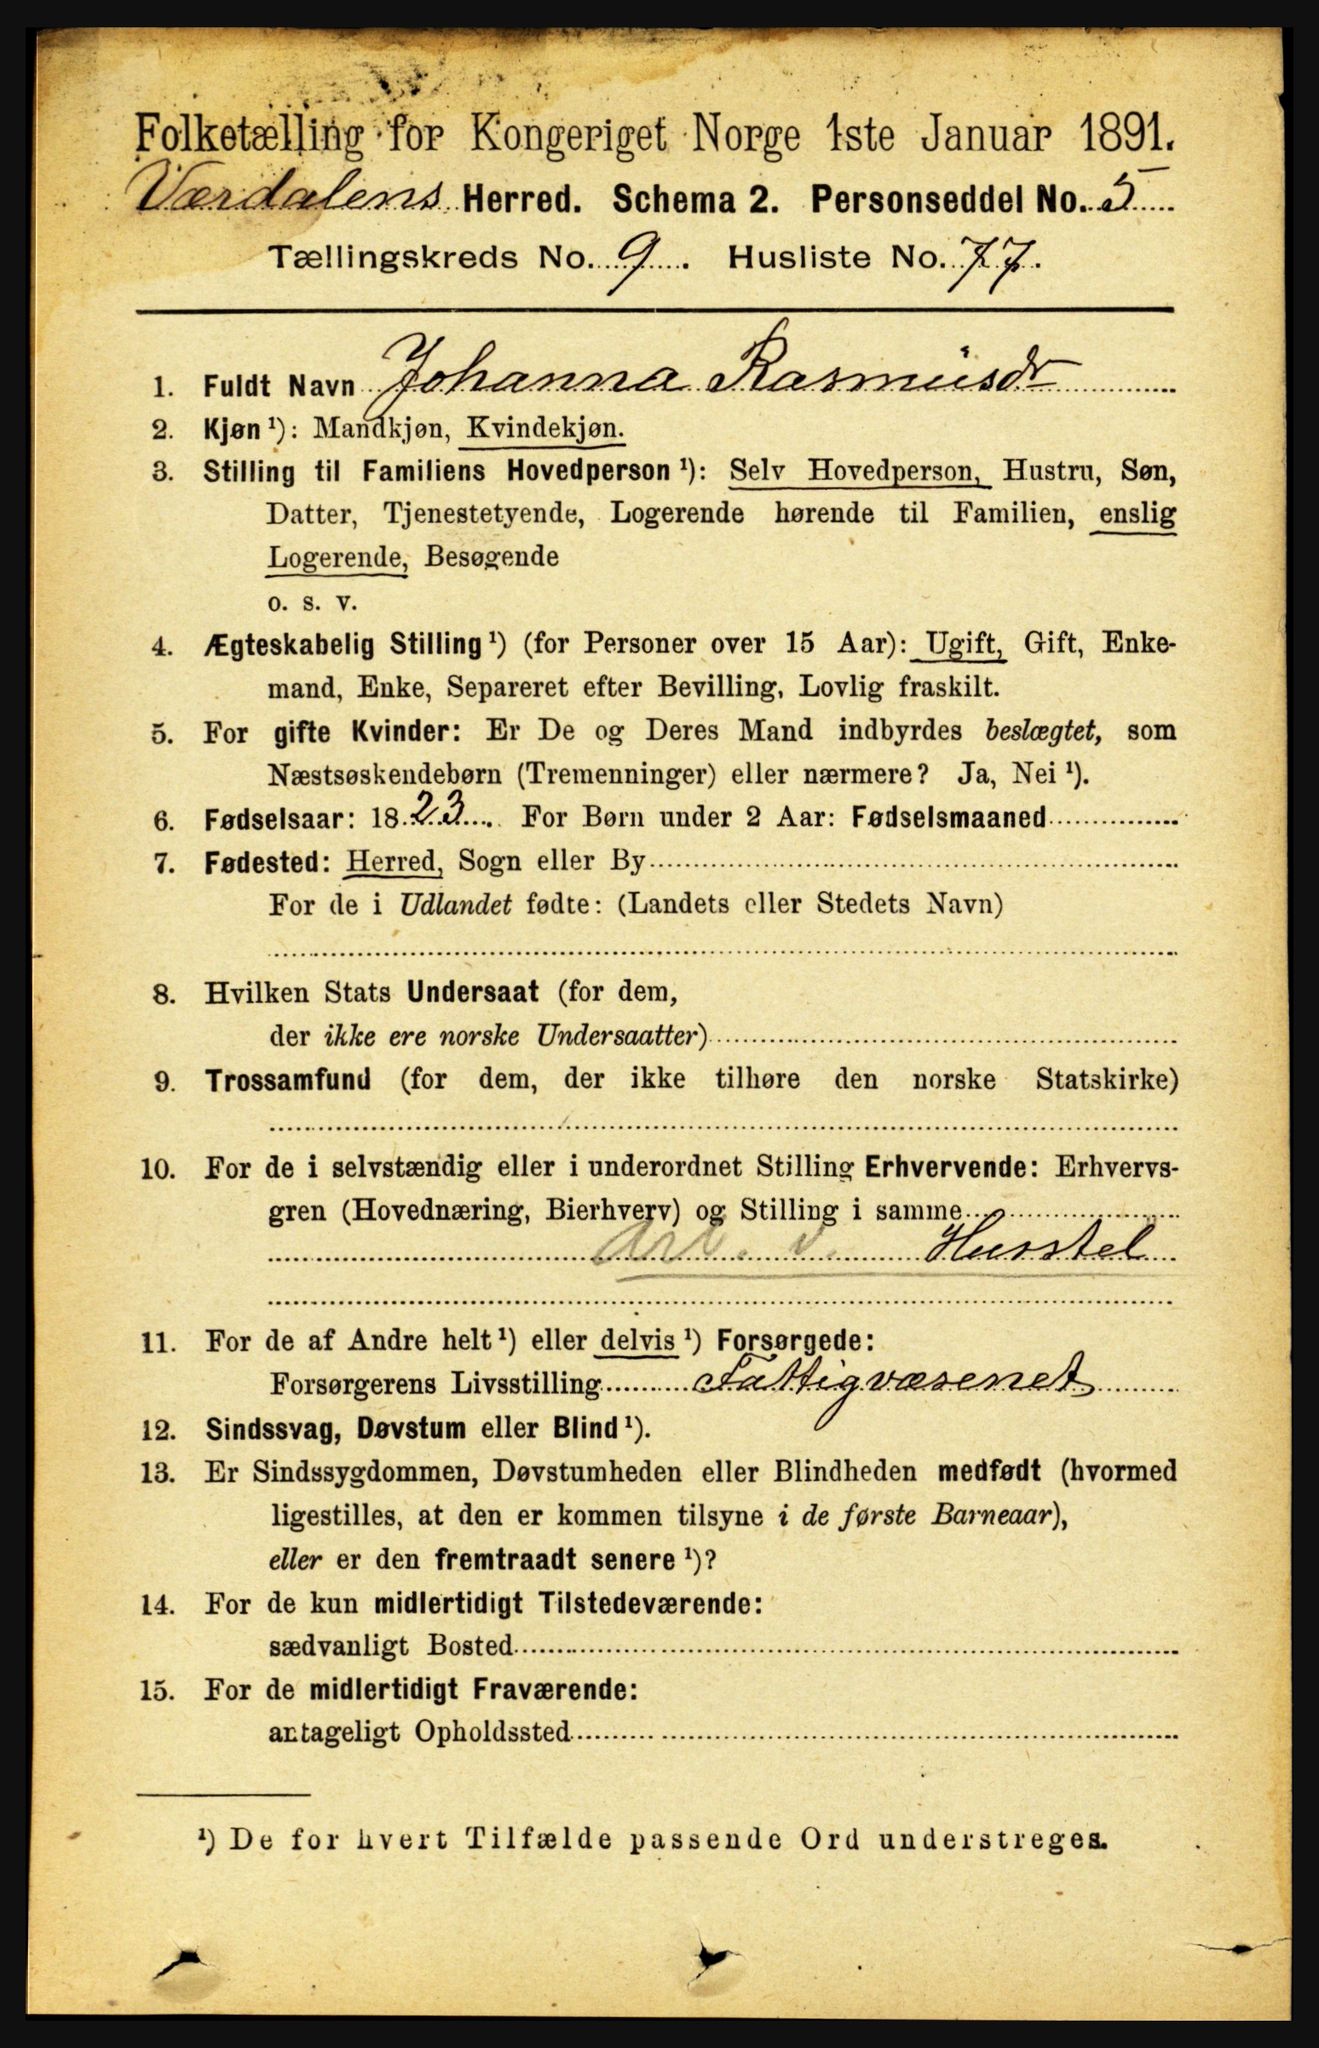 Folketælling for Kongeriget Norge 1ste Januar 1891.
Værdalens Herred. Schema 2. Personseddel No. 5
Tællingskreds No. 9. Husliste No. 77.
1. Fuldt Navn Johanna Rasmusdr
2. Kjøn¹): Mandkjøn, Kvindekjøn.
3. Stilling til Familiens Hovedperson¹): Selv Hovedperson, Hustru, Søn,
Datter, Tjenestetyende, Logerende hørende til Familien, enslig
Logerende, Besøgende
o. s. v.
4. Ægteskabelig Stilling¹) (for Personer over 15 Aar): Ugift, Gift, Enke-
mand, Enke, Separeret efter Bevilling, Lovlig fraskilt.
5. For gifte Kvinder: Er De og Deres Mand indbyrdes beslægtet, som
Næstsøskendebørn (Tremenninger) eller nærmere? Ja, Nei¹).
6. Fødselsaar: 1823. For Børn under 2 Aar: Fødselsmaaned
7. Fødested: Herred, Sogn eller By
For de i Udlandet fødte: (Landets eller Stedets Navn)
8. Hvilken Stats Undersaat (for dem,
der ikke ere norske Undersaatter)
9. Trossamfund (for dem, der ikke tilhøre den norske Statskirke)
10. For de i selvstændig eller i underordnet Stilling Erhvervende: Erhvervs-
gren (Hovednæring, Bierhverv) og Stilling i samme
Arb. v. Husstel
11. For de af Andre helt¹) eller delvis¹) Forsørgede:
Forsørgerens Livsstilling Fattigvæsenet
12. Sindssvag, Døvstum eller Blind¹).
13. Er Sindssygdommen, Døvstumheden eller Blindheden medfødt (hvormed
ligestilles, at den er kommen tilsyne i de første Barneaar),
eller er den fremtraadt senere¹)?
14. For de kun midlertidigt Tilstedeværende:
sædvanligt Bosted
15. For de midlertidigt Fraværende:
antageligt Opholdssted
¹) De for hvert Tilfælde passende Ord understreges.